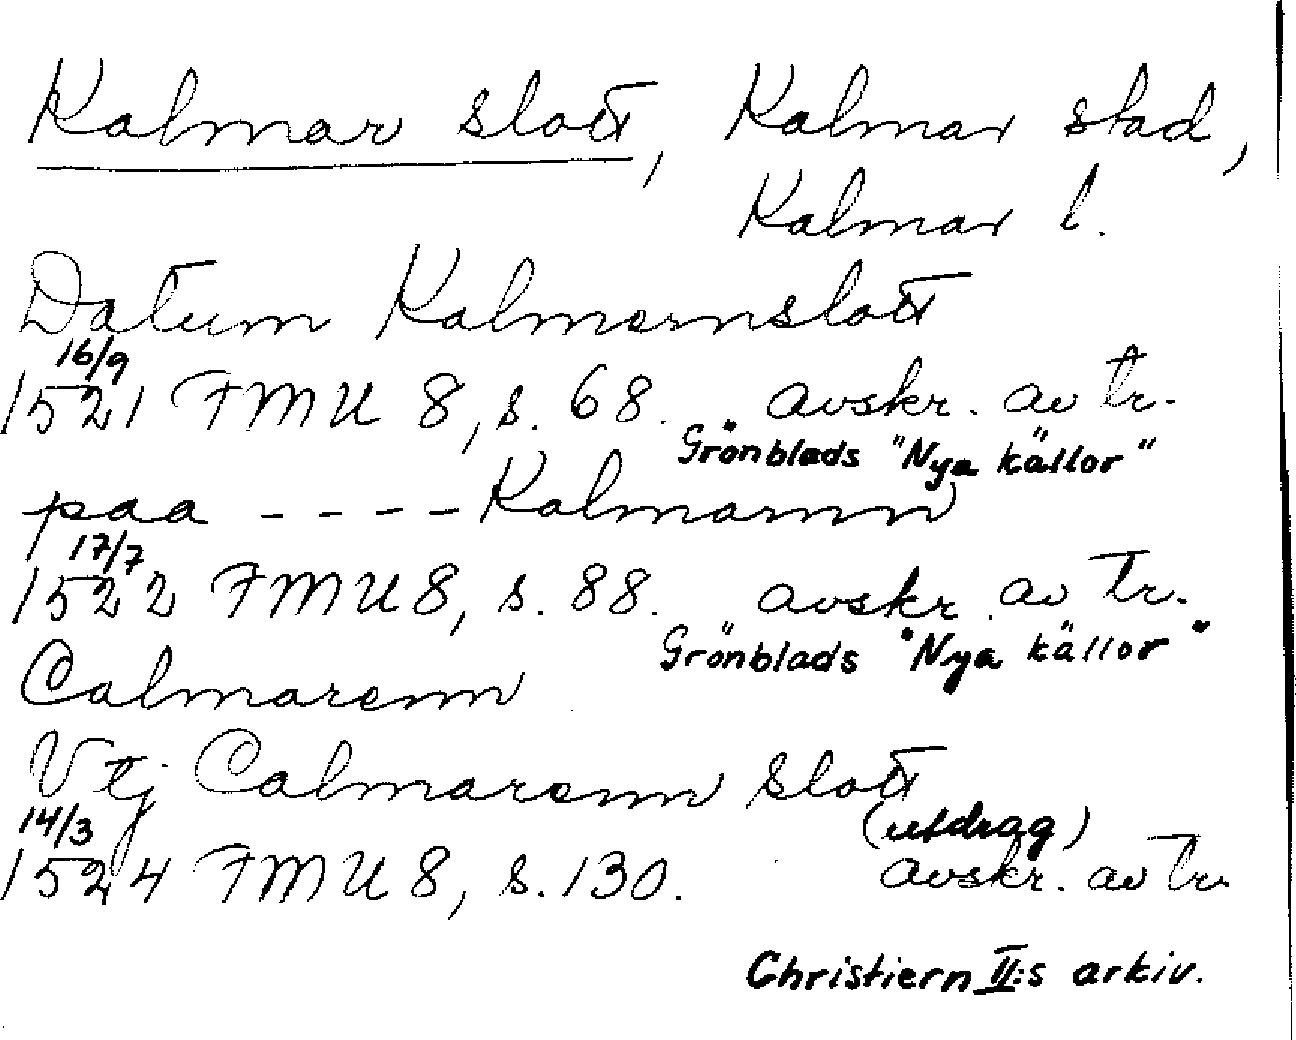 Kalmar slott, Kalmar stad,
Kalmar l.
Datum Kalmernslott
16/9
1521 FMU 8, s. 68. avskr. av tr.
Grönblads "Nya källor"
paa ---- Kalmarnn
17/7
1522 FMU 8, s. 88. avskr. av tr.
Grönblads "Nya källor"
Calmarenn
Vtj Calmarenn slott
14/3 (utdrag)
1524 FMU 8, s. 130. avskr. av tr.
Christiern II:s arkiv.